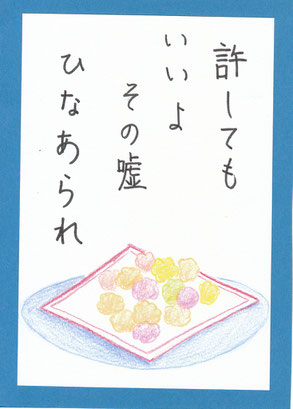 許しても
いいよ
その嘘
ひなあられ